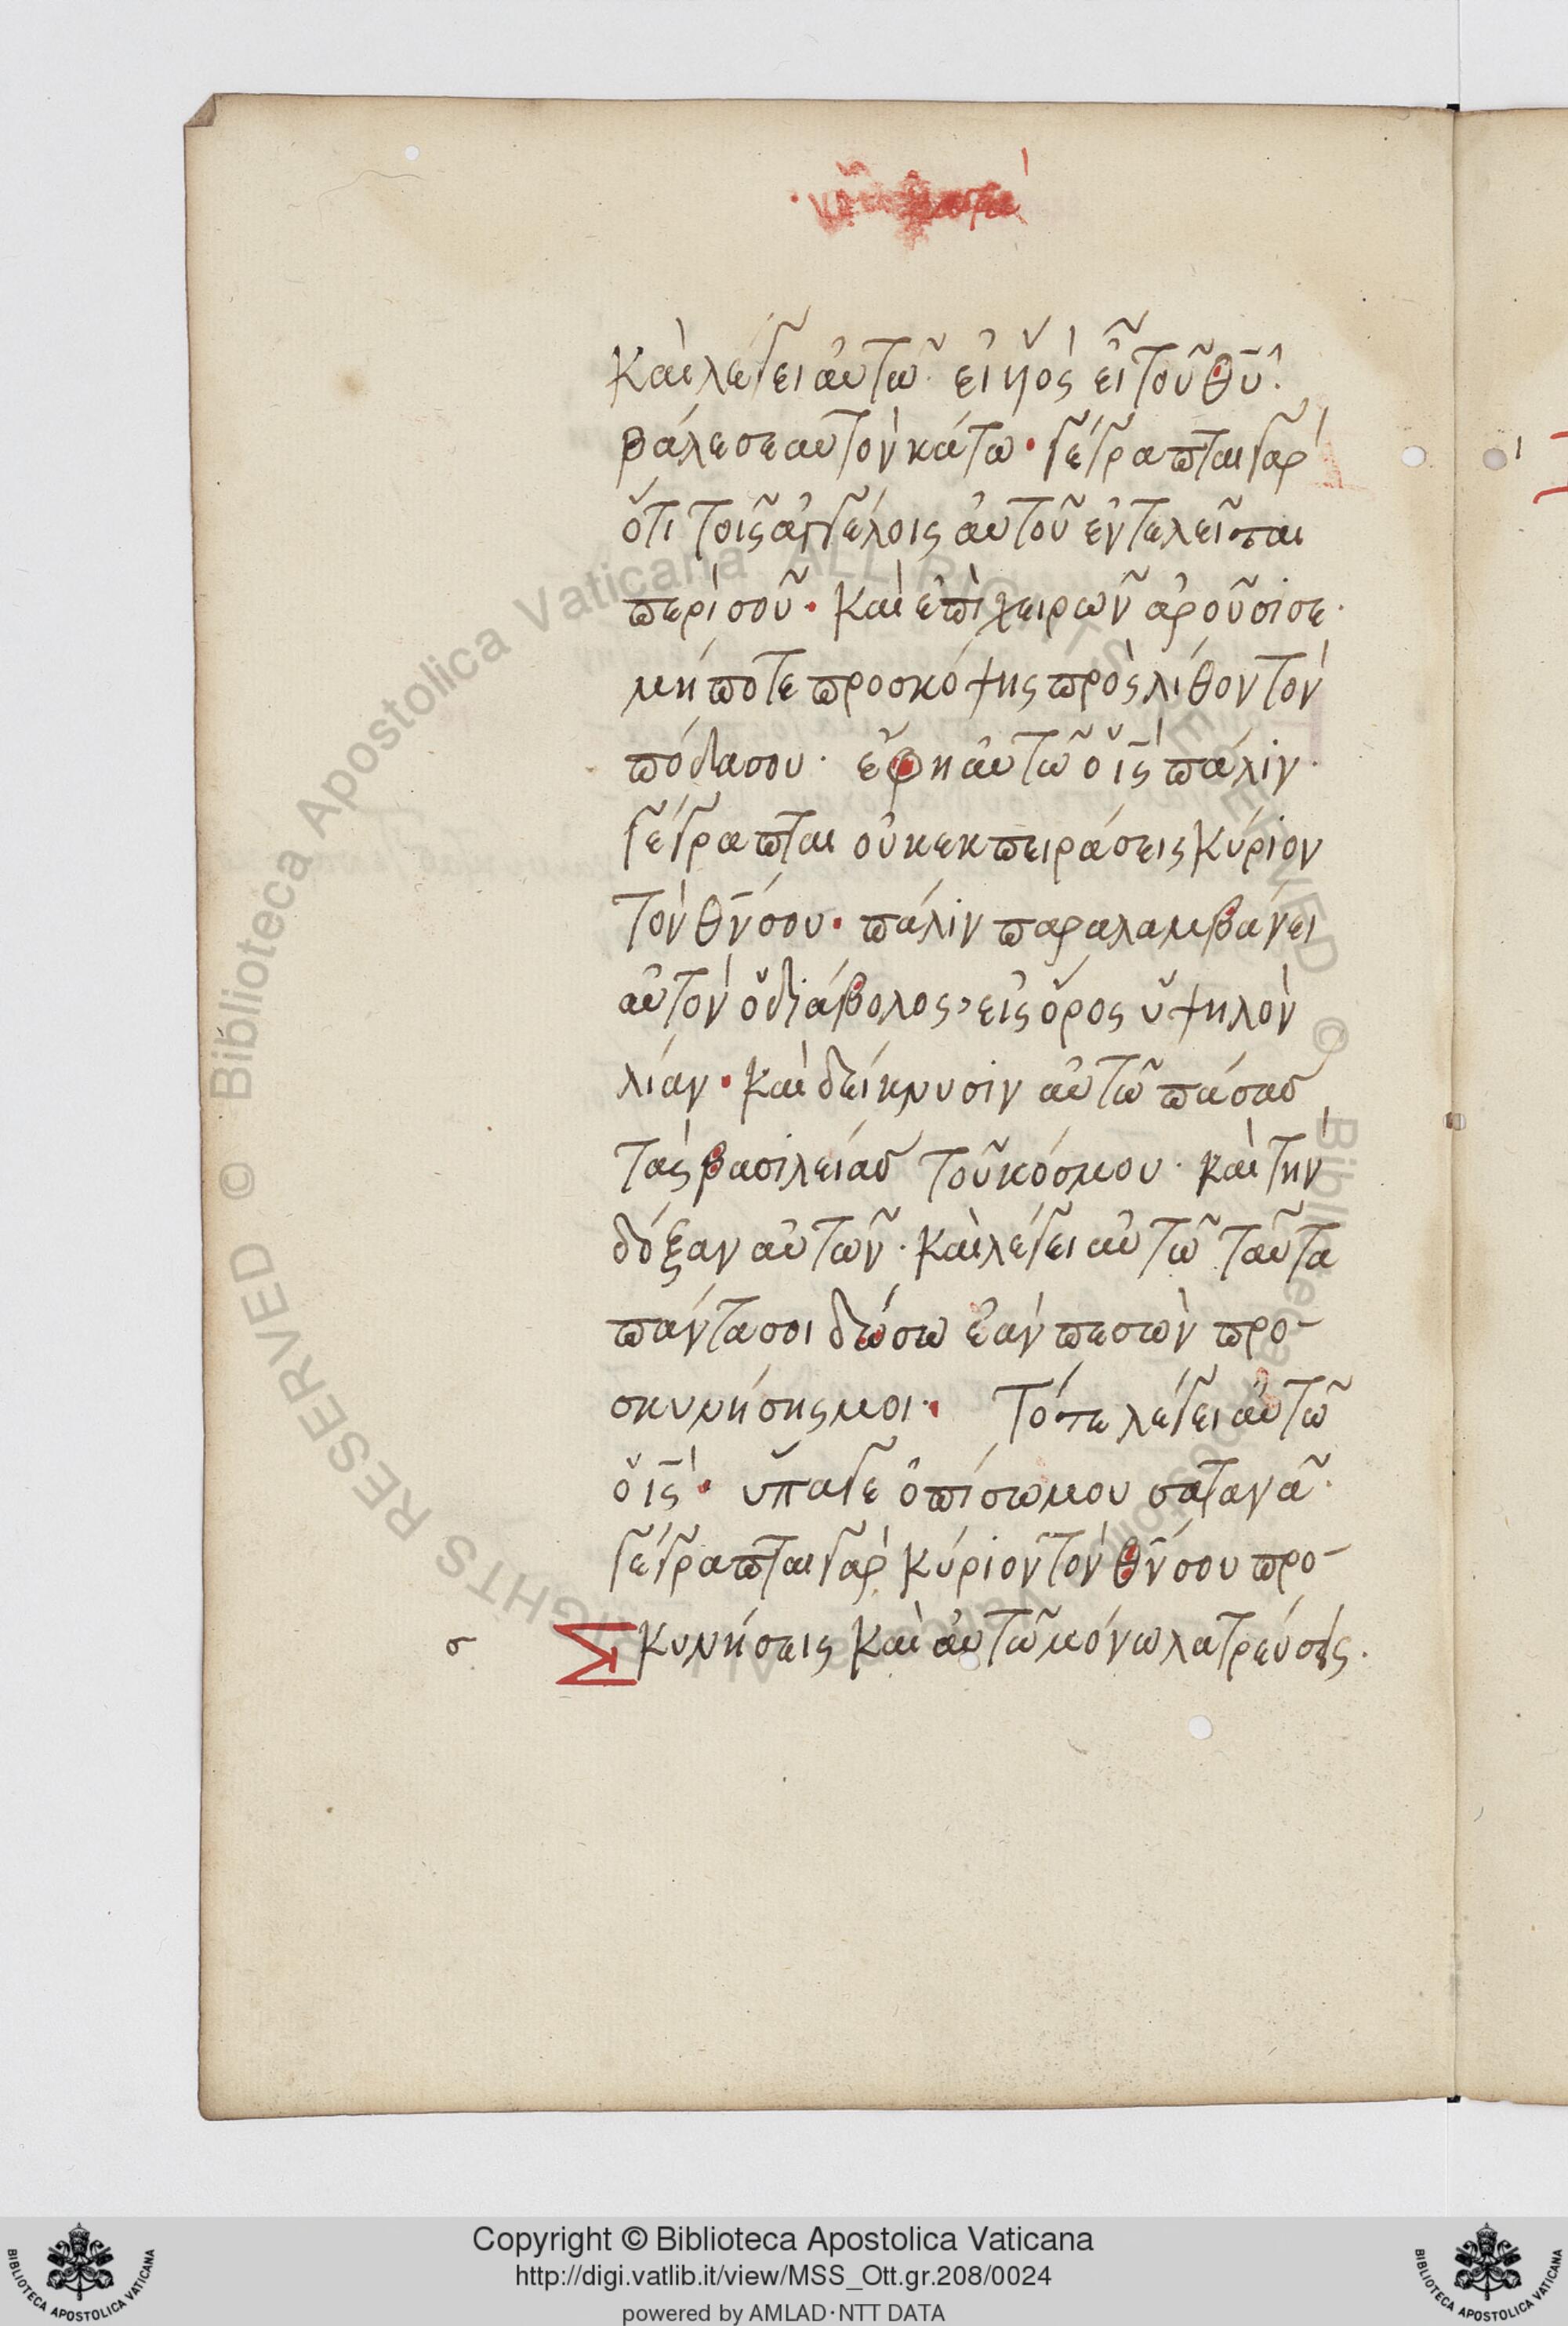 καὶ λέγει αὐτῶ· εἰ ὑ̅ο̅ς̅ εἶ τοῦ θ̅υ̅.
βάλε σεαυτὸν κάτω· γέγραπται γὰρ
ὅτι τοῖς ἀγγέλοις αὐτοῦ ἐντελεῖται
περὶ σοῦ· καὶ ἐπὶ χειρῶν ἀροῦσί σε·
μήποτε προσκόψης πρὸς λίθον τὸν
πόδα σου· ἔφη αὐτῶ ὁ ι̅ς̅ πάλιν·
γέγραπται οὐκ ἐκπειράσεις κύριον
τὸν θ̅ν̅ σου· πάλιν παραλαμβάνει
αὐτὸν ὁ διάβολος, εἰς ὄρος ὑψηλὸν
λίαν· καὶ δείκνυσιν αὐτῶ πάσας
τὰς βασιλείας τοῦ κόσμου· καὶ τὴν
δόξαν αὐτῶν· καὶ λέγει αὐτῶ ταῦτα
πάντα σοι δώσω ἐὰν πεσὼν προ-
σκυνήσης μοι· Τότε λέγει αὐτῶ
ὁ ι̅ς̅· ὕπαγε ὀπίσω μου σατανᾶ·
γέγραπται γὰρ κύριον τὸν θ̅ν̅ σου προ-
σ Σκυνήσεις καὶ αὐτῶ μόνω λατρεύσεις.
© Biblioteca Apostolica Vaticana ALL RIGHTS RESERVED © Biblioteca Apostolica Vaticana ALL RIGHTS RESERVED
Copyright © Biblioteca Apostolica Vaticana
http://digi.vatlib.it/view/MSS_Ott.gr.208/0024
powered by AMLAD·NTT DATA
BIBLIOTECA APOSTOLICA VATICANA
BIBLIOTECA APOSTOLICA VATICANA